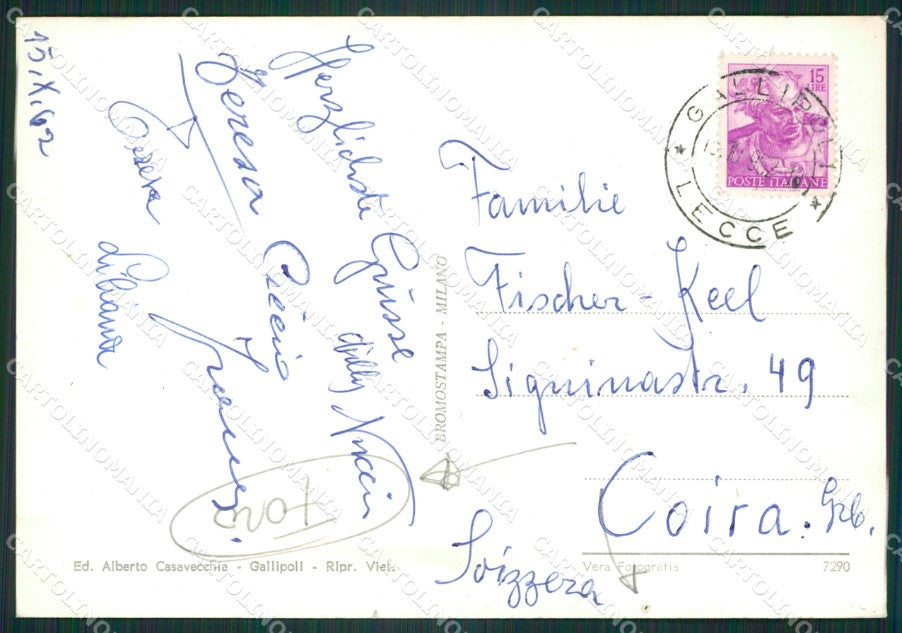 15.IX.62
Herzlichste Grüsse
Teresa Ciccio
Liliana
Familie
Fischer-Keel
Signinastr. 49
Coira. Grb.
Svizzera
15
LIRE
POSTE ITALIANE
GALLIPOLI
* LECCE *
BROMOSTAMPA - MILANO
Ed. Alberto Casavecchia - Gallipoli - Ripr. Viet.
Vera Fotografia
7290
CARTOLINOMANIA